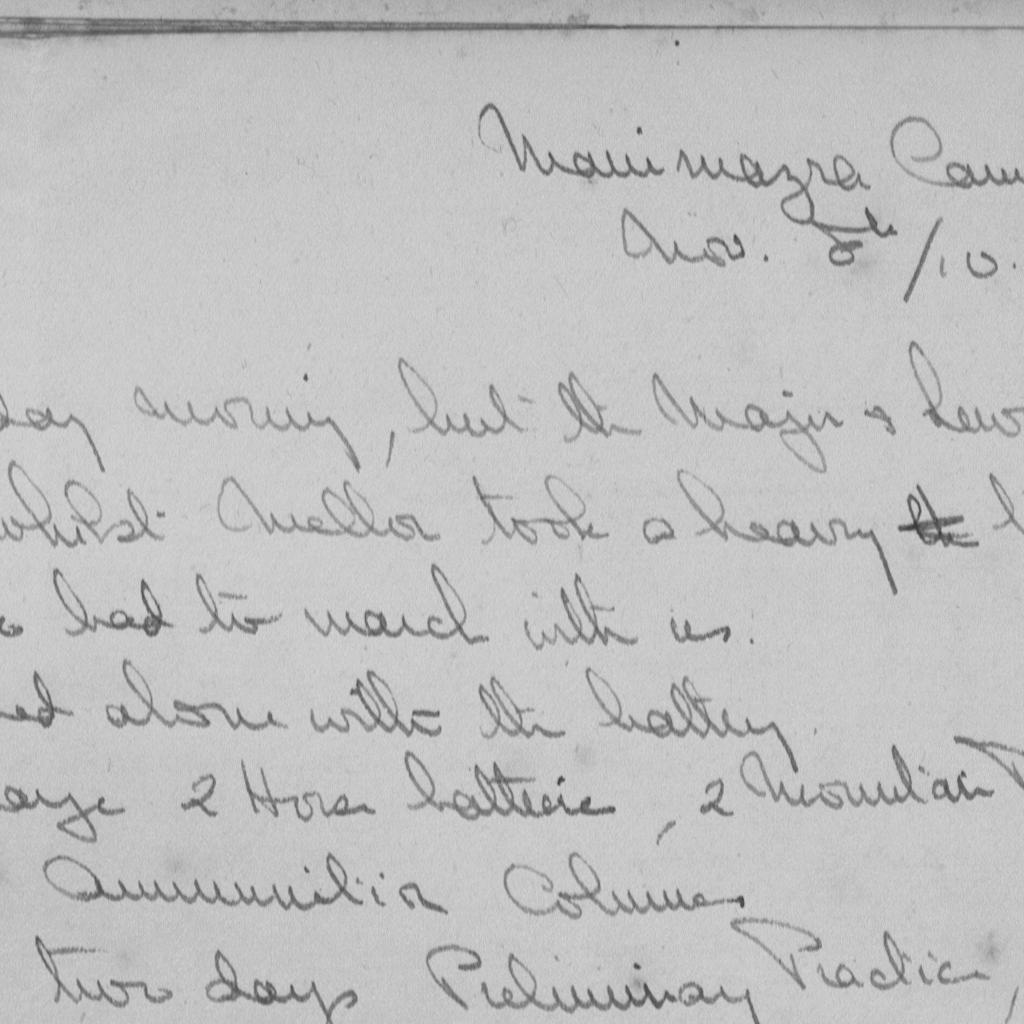 Manimazra Cam
Nov. 8th/10.
day morning, but the Major &
whilst Mellor took a heavy
had to march with us.
ed alone with the battery.
2 Horse batteries, 2 Mountain
Ammunition Columns
two days Preliminary Practice,